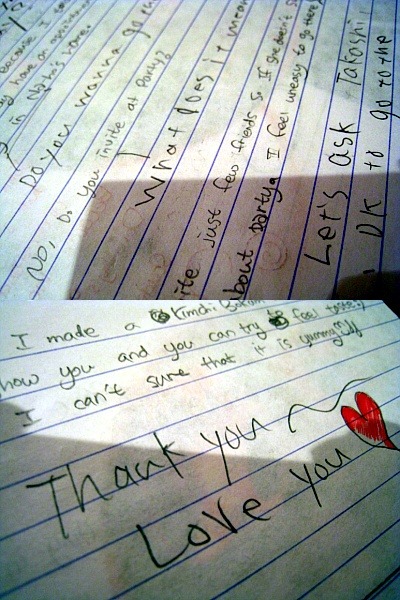 because I
have an appointment
in home.
Do you wanna go
No, Do you invite at party?
What does it mean
invite just few friends So If she doesn't
about party I feel uneasy to go there
Let's ask Takoshi,
OK to go to the
I made a Kimchi
how you and you can try feel taste:)
I can't sure that it is yummy
Thank you
Love you